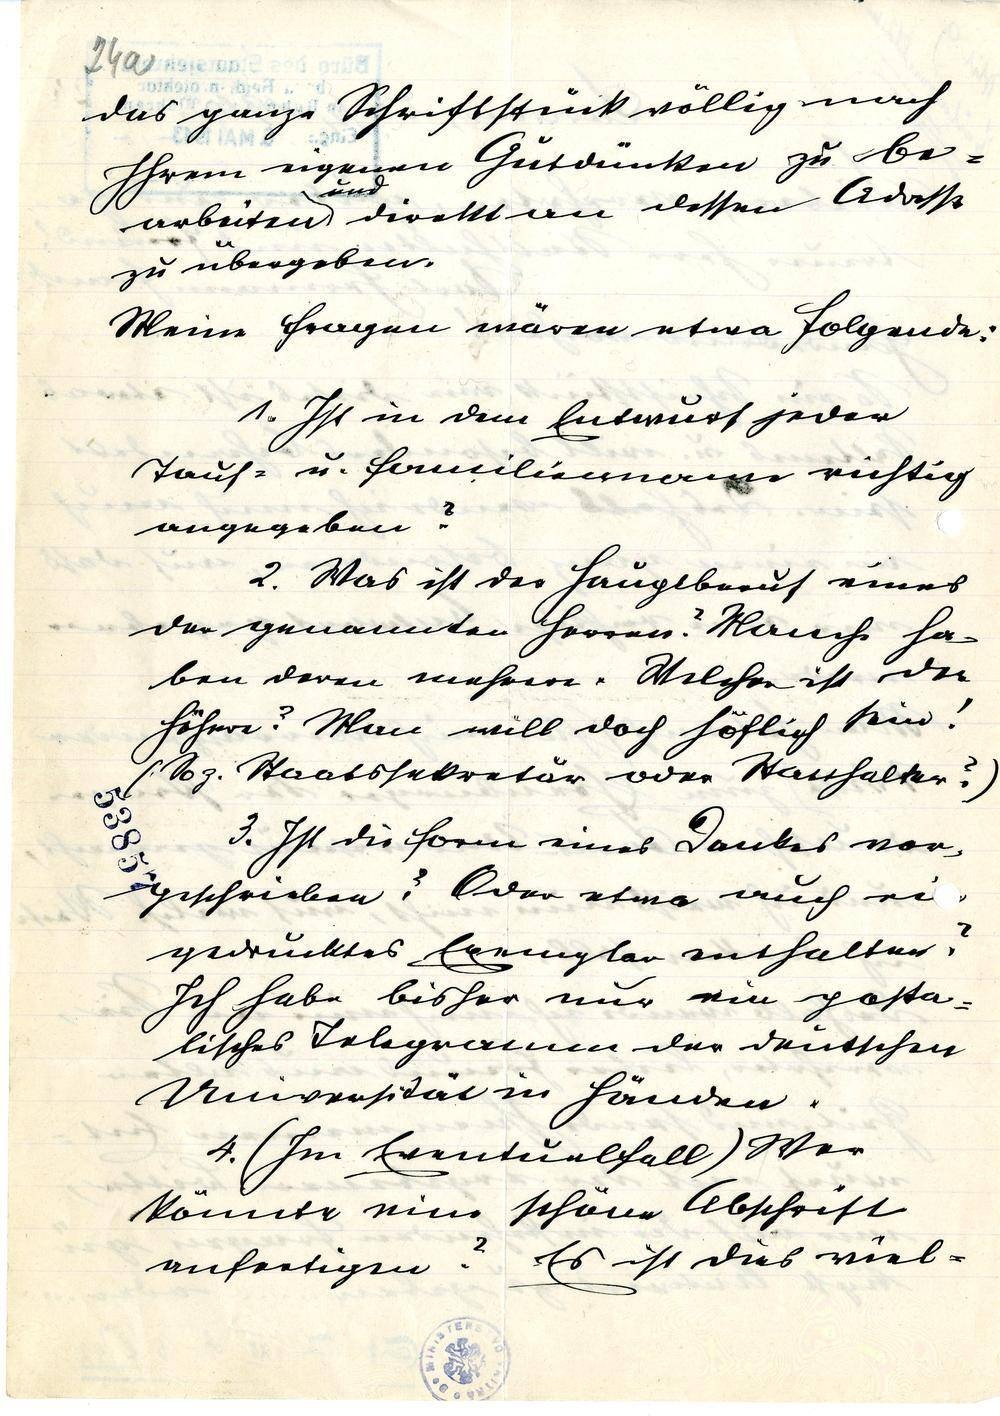 24a
das ganze Schriftstück völlig nach
Ihrem eigenen Gutdünken zu be=
arbeiten und direkt an dessen Adresse
zu übergeben.
Meine Fragen wären etwa folgende:
1. Ist in dem Entwurf jeder
Tauf= u. Familienname richtig
angegeben?
2. Was ist der Hauptberuf eines
der genannten Herren? Manche ha-
ben deren mehrere. Welcher ist der
höhere? Man will doch höflich sein!
(Bz. Staatssekretär oder Statthalter?)
5385
3. Ist die Form eines Dankes vor-
geschrieben? Oder etwa auch ei
gedrucktes Exemplar enthalten?
Ich habe bisher nur ein posta=
lisches Telegramm der deutschen
Universität in Händen.
4. (Im Eventualfall) Wer
könnte eine schöne Abschrift
anfertigen? Es ist dies viel=
MINISTERSTVO VNITRA